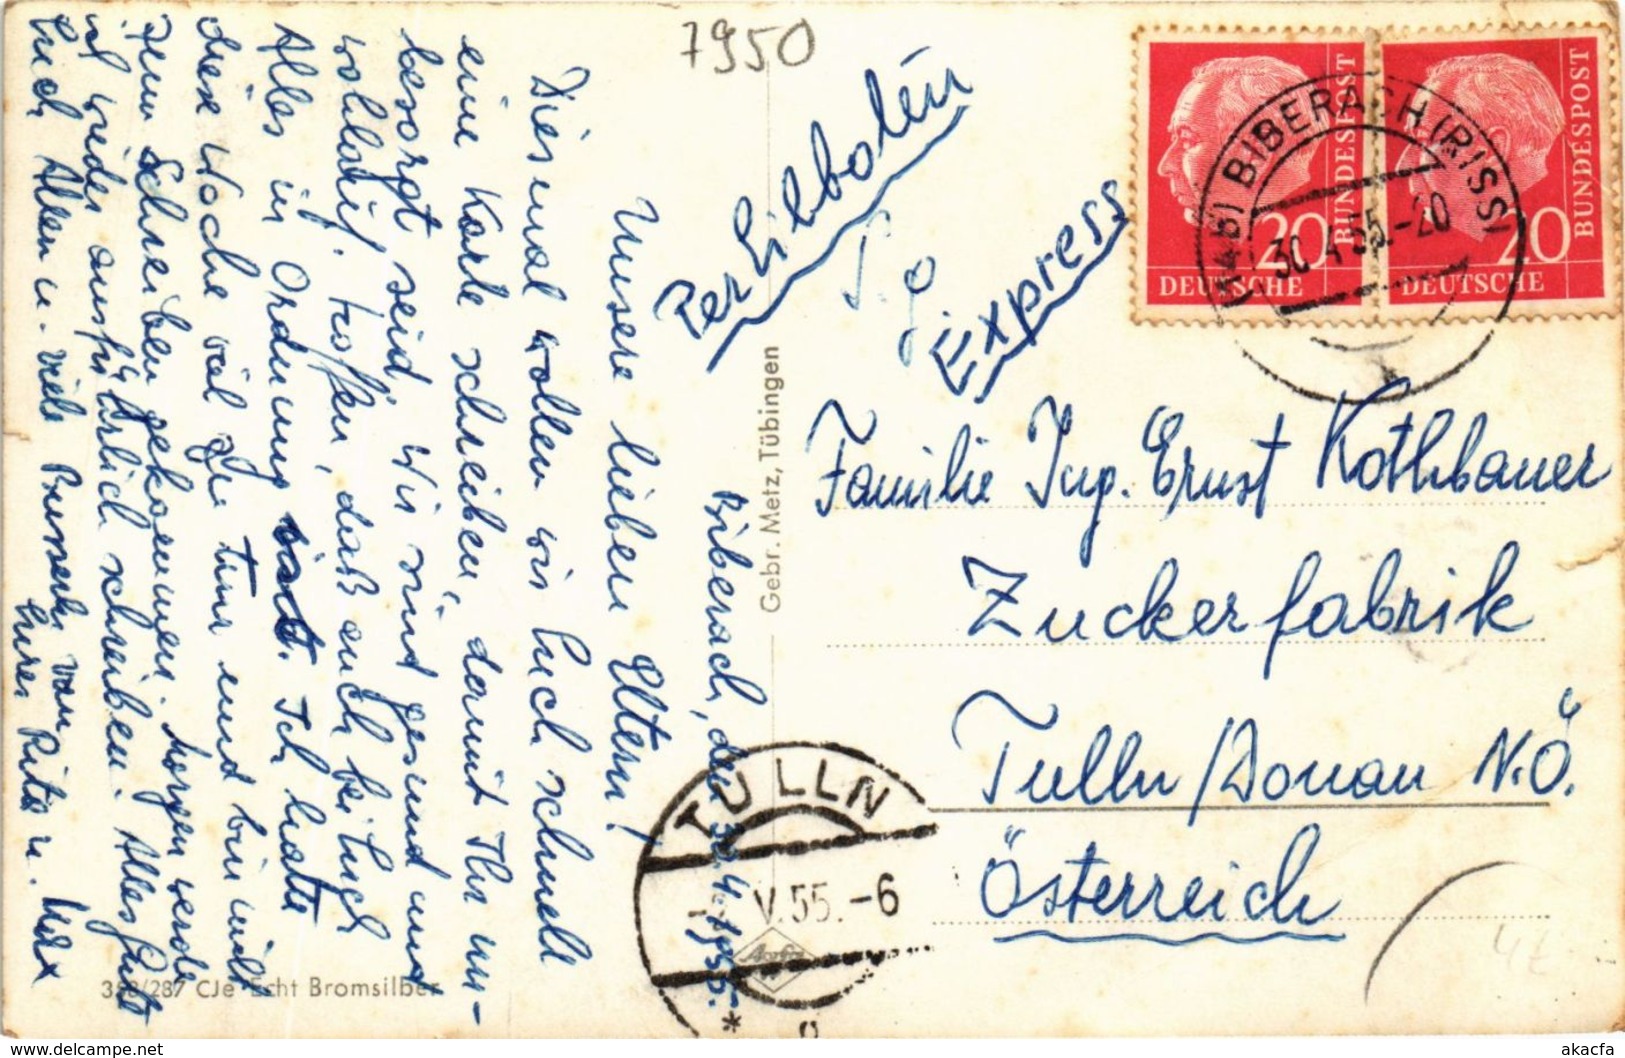 7950
Per Eilboten
Express
BUNDESPOST
20
DEUTSCHE
BUNDESPOST
20
DEUTSCHE
(14b) BIBERACH (RISS)
30.4.55.-20
Biberach, den 30.4.1955.
Unsere lieben Eltern!
Diesmal wollen wir Euch schnell
eine Karte schreiben, damit Ihr un-
besorgt seid. Wir sind gesund und
wohlauf. Hoffen, daß auch bei Euch
Alles in Ordnung ist. Ich hatte
diese Woche viel zu tun und bin nicht
zum Schreiben gekommen. Morgen werde
ich wieder ausführlich schreiben. Alles Gute
Euch Allen u. viele Busserln von
Eurer Rita u. Max
Gebr. Metz, Tübingen
Familie Ing. Ernst Kothbauer
Zuckerfabrik
Tulln/Donau N.Ö.
Österreich
TULLN
V.55.-6
Agfa
CJe Echt Bromsilber
akacfa